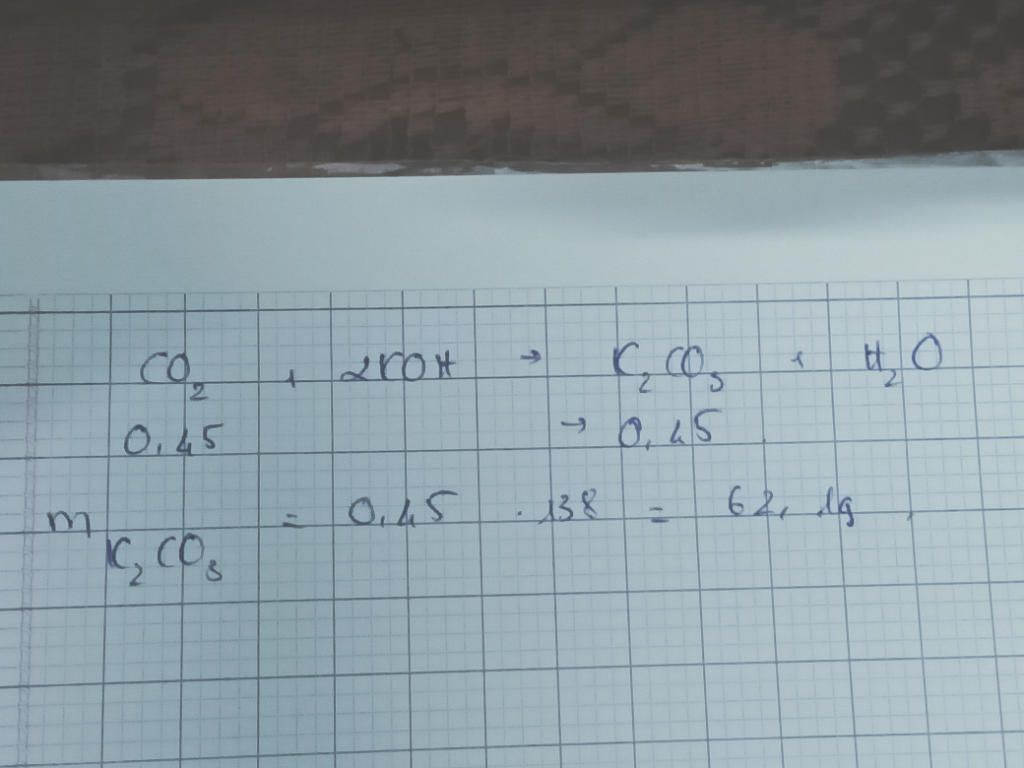 CO₂ + 2KOH → K₂CO₃ + H₂O
0,45 → 0,45
m K₂CO₃ = 0,45 . 138 = 62,1g